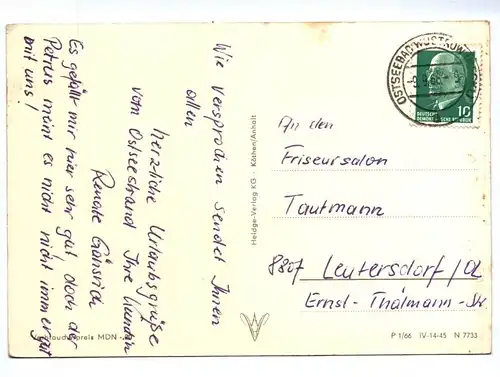 Wie versprochen sendet Ihnen
allen
herzliche Urlaubsgrüße
vom Ostseestrand Ihre Kundin
Renate
Es gefällt mir hier sehr gut doch der
Petrus meint es nicht immer gut
mit uns!
Verbraucherpreis MDN
Heldge-Verlag KG · Köthen/Anhalt
OSTSEEBAD WUSTROW
DEUTSCHE
DEMOKRATISCHE REPUBLIK
10
An den
Friseursalon
Tautmann
8807 Leutersdorf/OL
Ernst-Thälmann-Str
P 1/66 IV-14-45 N 7733